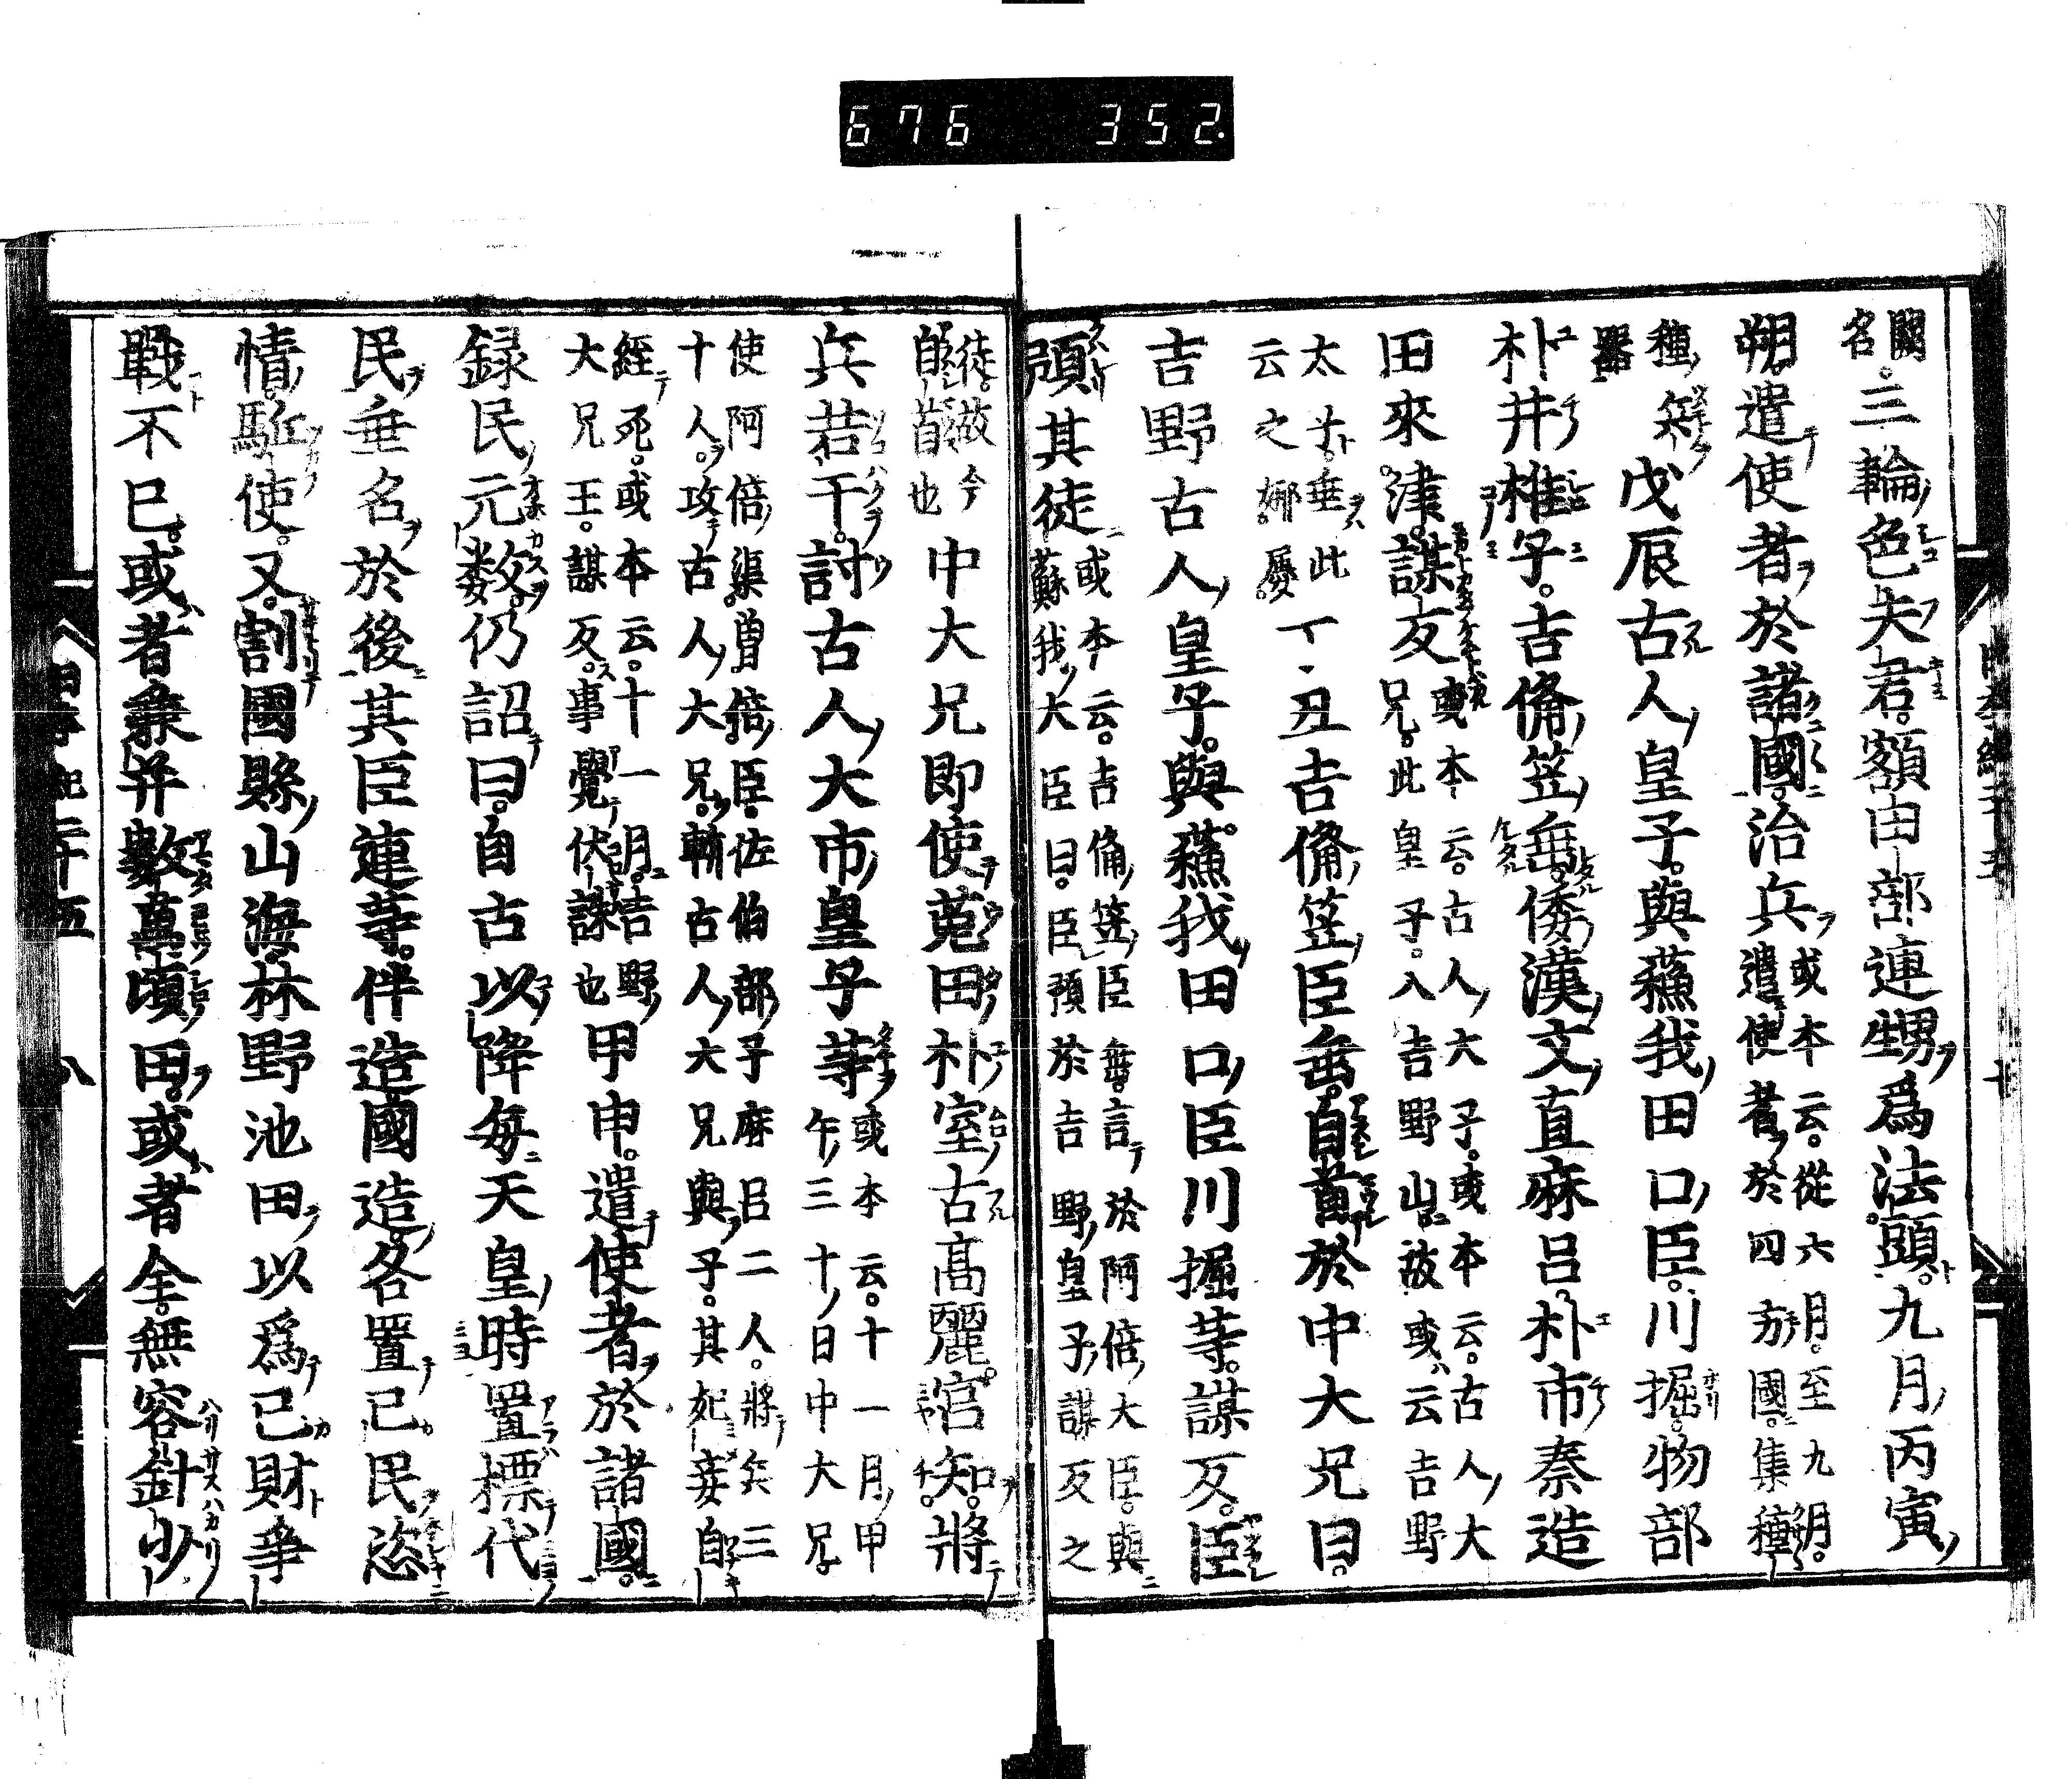 676 352
闕名。三輪色夫君。額田部連甥爲法頭。九月丙寅
朔。遣使者於諸國治兵或本云。從六月。至九月。遣使者於四方國。集種
種兵器 戊辰古人皇子。與蘇我田口臣川掘。物部
朴井椎子。吉備笠垂。倭漢文直麻呂。朴市秦造
田來津。謀反或本云。古人大子。或本云。古人大兄。此皇子。入吉野山。故或云吉野
太子。垂此云之娜屢。 丁丑吉備笠臣垂。自首於中大兄曰。
吉野古人皇子。與蘇我田口臣川掘等。謀反。臣
預其徒或本云。吉備笠臣垂。言於阿倍大臣。與蘇我大臣曰。臣預於吉野皇子謀反之
徒。故今自首也 中大兄即使菟田朴室古。高麗宮知。將
兵若干。討古人大市皇子等或本云。十一月甲午三十日中大兄。
使阿倍渠曽倍臣。佐伯部子麻呂二人。將兵三十人。攻古人大兄。斬古人大兄與子。其妃妾自
經死。或本云。十一月。吉野大兄王。謀反。事覺伏誅也 甲申。遣使者於諸國。
録民元数。仍詔曰。自古以降毎天皇時置標代
民垂名於後其臣連等。伴造國造。各置己民恣
情駈使。又。割國縣山海。林野池田以爲己財爭
戰不已。或者兼并數萬頃田。或者全。無容針少
日本紀二十五 八
十